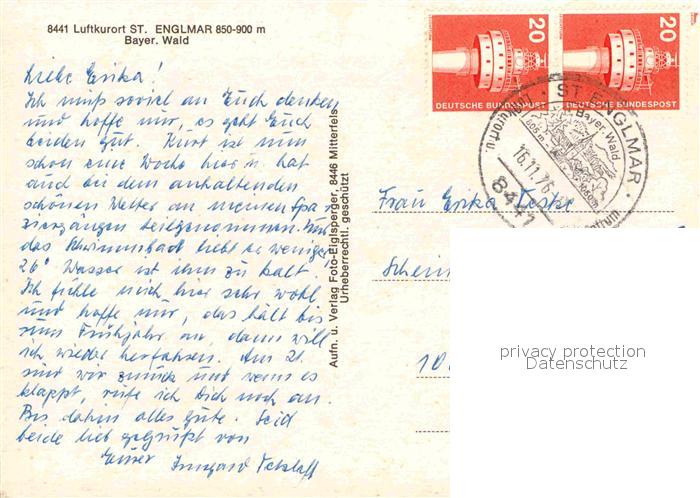 8441 Luftkurort ST. ENGLMAR 850-900 m
Bayer. Wald
Liebe Erika!
Ich muß soviel an Euch denken
und hoffe nur, es geht Euch
beiden gut. Kurt ist nun
schon eine Woche hier u. hat
auch bei dem anhaltenden
schönen Wetter an meinen Spa
ziergängen teilgenommen. Für
das Schwimmbad liebt er weniger
26° Wasser ist ihm zu kalt.
Ich fühle mich hier sehr wohl
und hoffe nur, das hält bis
zum Frühjahr an, dann will
ich wieder herfahren. Am 21.
sind wir zurück und wenn es
klappt, rufe ich Dich noch an.
Bis dahin alles Gute. Seid
beide lieb gegrüßt von
Eurer Irmgard Tetzlaff
Aufn. u. Verlag Foto-Eiglsperger, 8446 Mitterfels
Urheberrechtl. geschützt
20
DEUTSCHE BUNDESPOST
20
DEUTSCHE BUNDESPOST
ST. ENGLMAR
Bayer. Wald
16.11.76
8441
Frau Erika Teske
10
privacy protection
Datenschutz